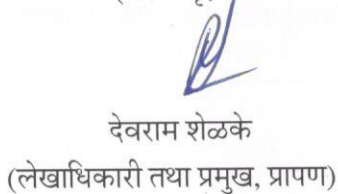 देवराम शेळके
(लेखाधिकारी तथा प्रमुख, प्रापण)